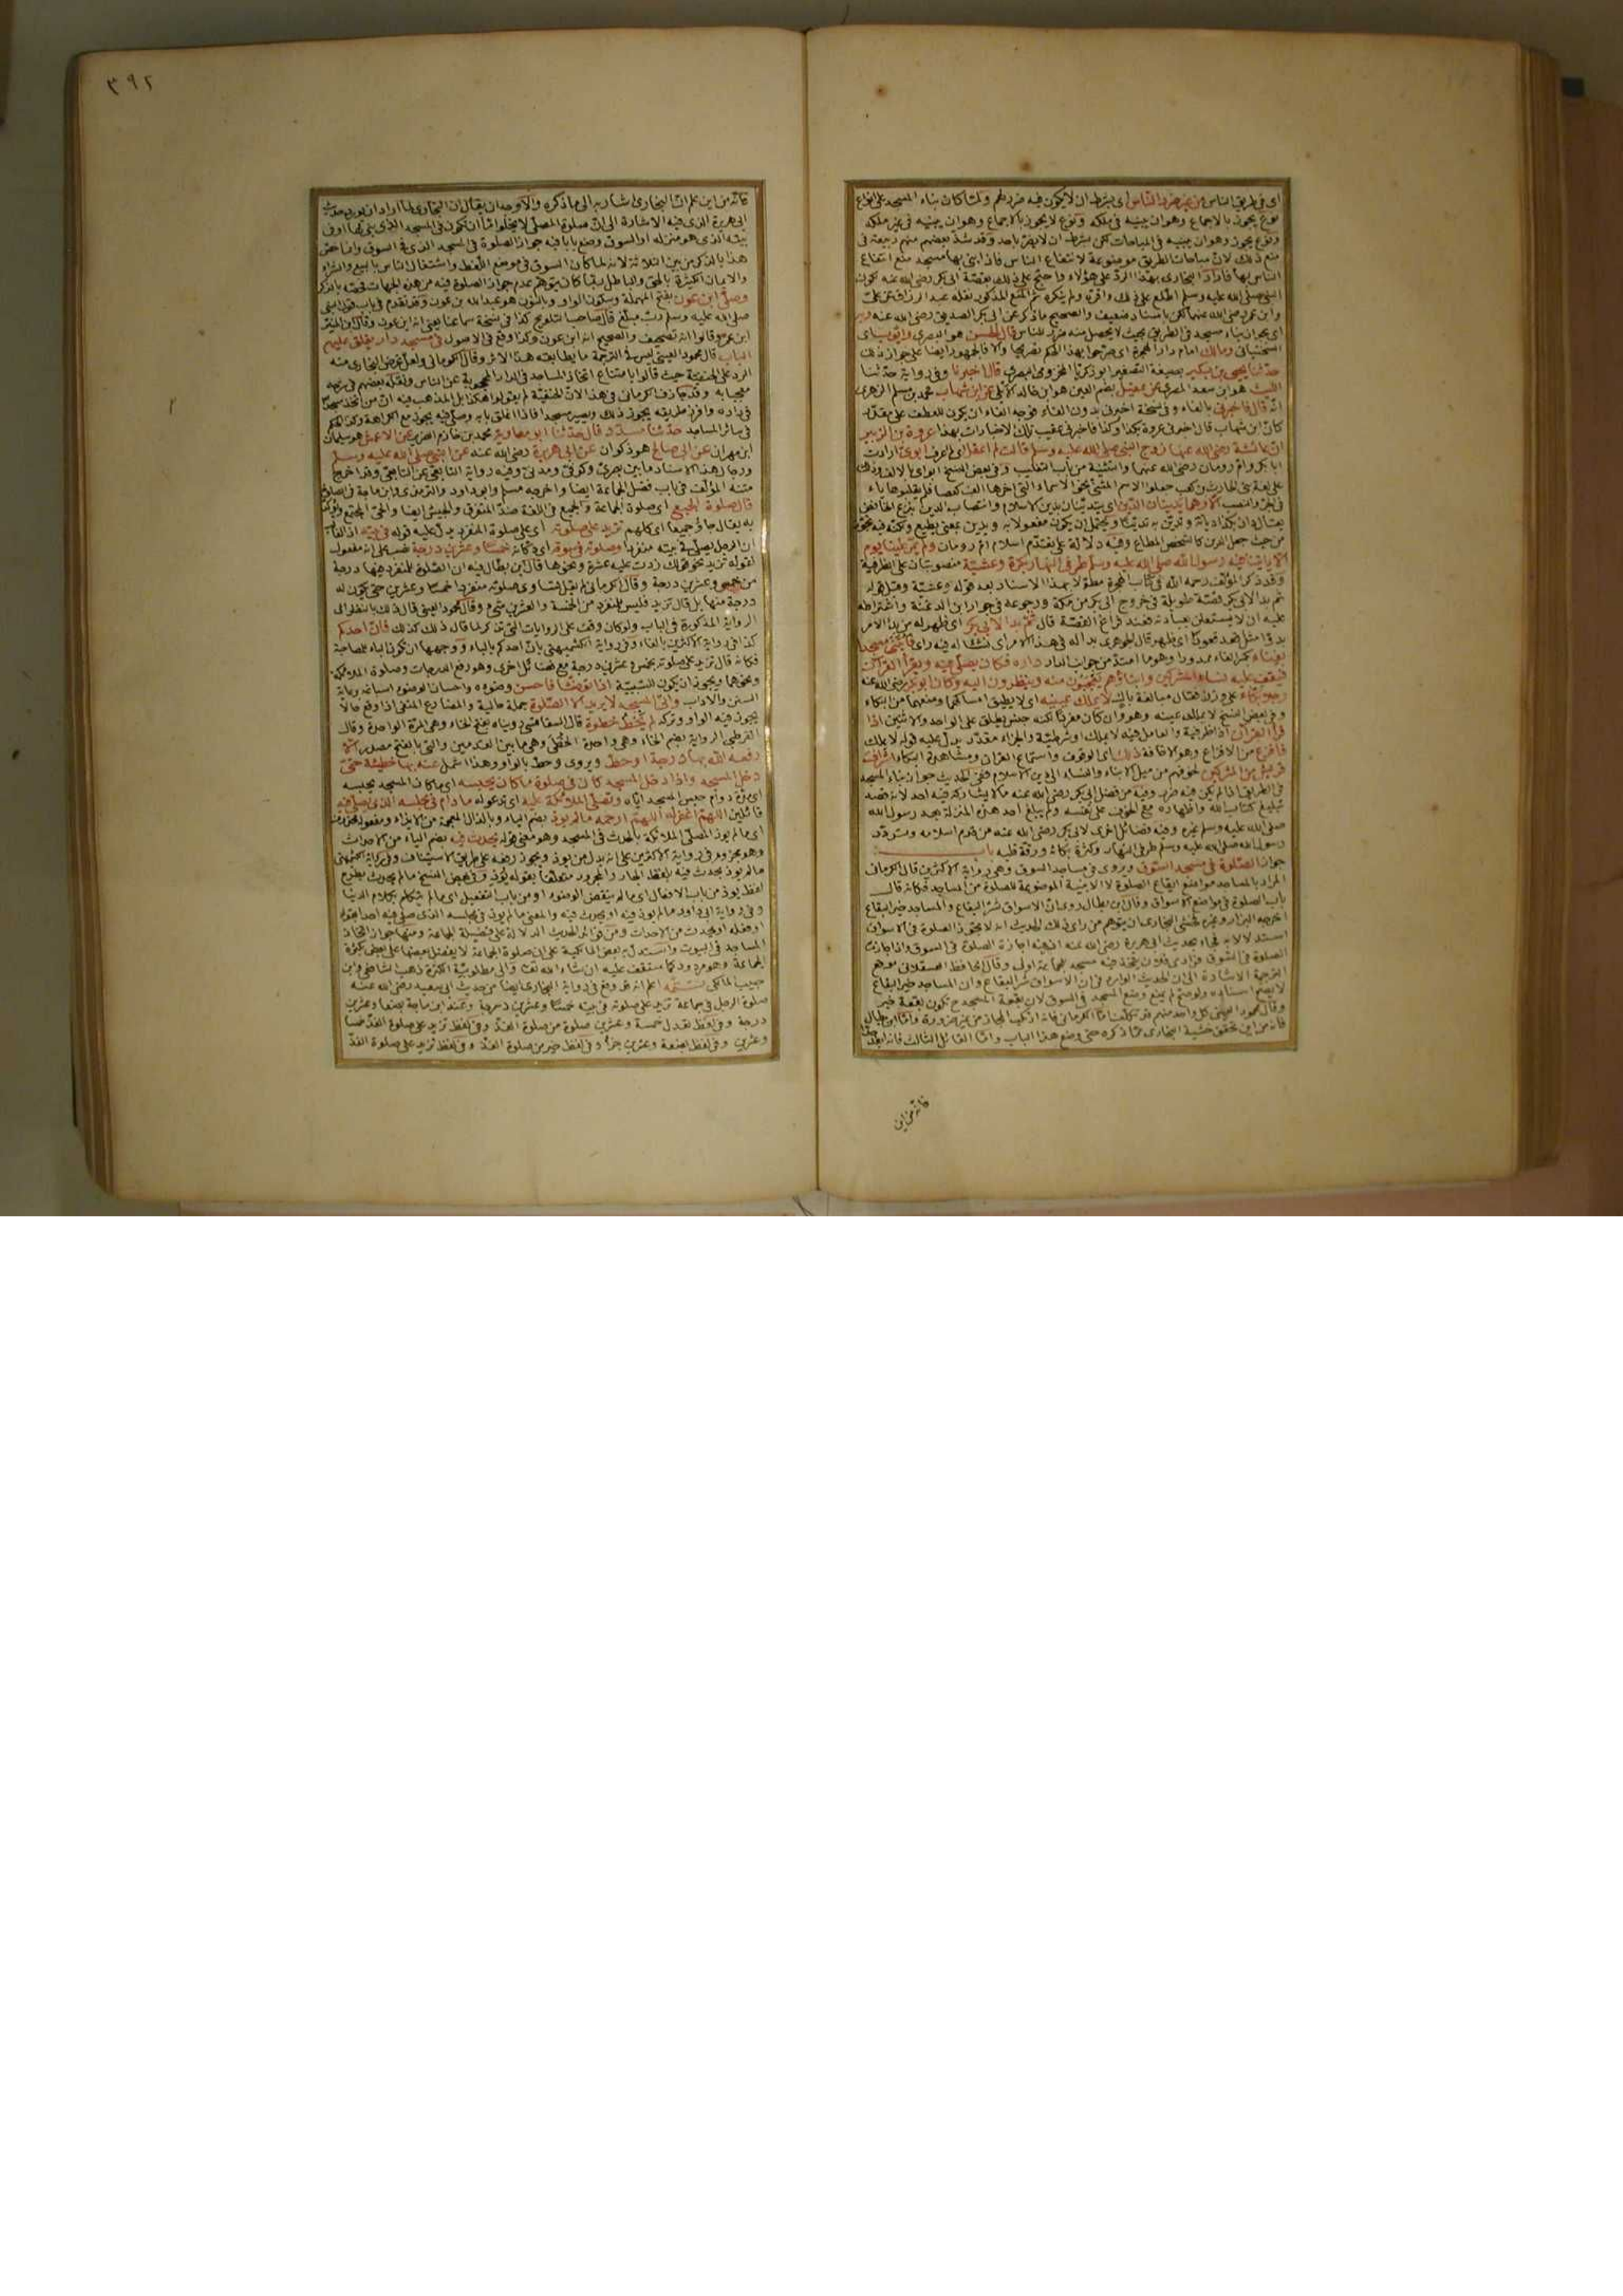 اى فى طريق الناس من غير ضرر للناس اى بشرط ان لا يكون فيه ضرر لهم ولما كان بناء المسجد على انواع
نوع يجوز بالاجماع وهو ان يبنيه فى ملكه ونوع لا يجوز بالاجماع وهو ان يبنيه فى غير ملكه
ونوع يجوز وهو ان يبنيه فى المباحات لكن بشرط ان لا يضر باحد وقد شذ بعضهم منهم ربيعة فى
منع ذلك لان مباحات الطريق موضوعة لانتفاع الناس فاذا بنى بها مسجد منع انتفاع
الناس بها فاراد البخارى بهذا الرد على هؤلاء واحتج على ذلك بقصة ابى بكر رضى الله عنه لكون
النبى صلى الله عليه وسلم اطلع على ذلك واقره ولم ينكره ثم المنع المذكور نقله عبد الرزاق عن على
وابن عمر رضى الله عنهما لكن باسناد ضعيف والصحيح ما ذكر عن ابى بكر الصديق رضى الله عنه وبه
اى بجواز بناء مسجد فى الطريق بحيث لا يحصل منه ضرر للناس قال الحسن هو البصرى وايوب اى
السختيانى ومالك امام دار الهجرة اى صرحوا بهذا الحكم تصريحا والا فالجمهور ايضا على جواز ذلك
حدثنا يحيى بن بكير بصيغة التصغير ابو زكريا المخزومى المصرى قال اخبرنا وفى رواية حدثنا
الليث هو ابن سعد المصرى عن عقيل بضم العين هو ابن خالد الايلى عن ابن شهاب محمد بن مسلم الزهرى
انه قال فاخبرنى بالفاء وفى نسخة اخبرنى بدون الفاء فوجه الفاء ان يكون للعطف على مقدر
كان ابن شهاب قال اخبرنى عروة بكذا وكذا فاخبرنى عقيب تلك الاخبارات بهذا عروة بن الزبير
ان عائشة رضى الله عنها زوج النبى صلى الله عليه وسلم قالت لم اعقل اى لم اعرف ابوى ارادت
ابا بكر وام رومان رضى الله عنهما والتثنية من باب التغليب وفى بعض النسخ ابواى بالالف وذلك
على لغة بنى الحارث بن كعب جعلوا الاسم المثنى نحو الاسماء التى اخرها الف كعصا فلم يقلبوها ياء
فى الجر والنصب الا وهما يدينان الدين اى يتدينان بدين الاسلام وانتصاب الدين بنزع الخافض
يقال دان بكذا ديانة وتدين به تدينا ويحتمل ان يكون مفعولا به ويدين بمعنى يطيع ولكنه فيه تجوز
من حيث جعل الدين كالشخص المطاع وفيه دلالة على تقدم اسلام ام رومان ولم يمر علينا يوم
الا ياتينا فيه رسول الله صلى الله عليه وسلم طرفى النهار بكرة وعشية منصوبتان على الظرفية
وقد ذكر المؤلف رحمه الله فى كتاب الهجرة مطولا بهذا الاسناد بعد قوله وعشية وقبل قوله
ثم بدا لابى بكر قصة طويلة فى خروج ابى بكر من مكة ورجوعه فى جوار ابن الدغنة واشتراطه
عليه ان لا يستعلن بعبادته فعند فراغ القصة قال ثم بدا لابى بكر اى ظهر له من بدا الامر
بدوا مثل قعد قعودا اى ظهر قال الجوهرى بدا له فى هذا الامر اى نشا له فيه راى فابتنى مسجدا
بفناء بكسر الفاء ممدودا وهو ما امتد من جوانب الدار داره فكان يصلى فيه ويقرا القران
فيقف عليه نساء المشركين وابناؤهم يعجبون منه وينظرون اليه وكان ابو بكر رضى الله عنه
رجلا بكاء على وزن فعال مبالغة باك لا يملك عينيه اى لا يطيق امساكهما ومنعهما من البكاء
وفى بعض النسخ لا يملك عينه وهو وان كان مفردا لكنه جنس يطلق على الواحد والاثنين اذا
قرا القران اذا ظرفية والعامل فيه لا يملك او شرطية والجزاء مقدر يدل عليه قوله لا يملك
فافزع من الافزاع وهو الاخافة ذلك اى الوقوف واستماع القران ومشاهدة البكاء اشراف
قريش من المشركين لخوفهم من ميل الابناء والنساء الى دين الاسلام ففى الحديث جواز بناء المسجد
فى الطريق اذا لم يكن فيه ضرر وفيه من فضل ابى بكر رضى الله عنه ما لا يشاركه فيه احد لانه قصد
تبليغ كتاب الله واظهاره مع الخوف على نفسه ولم يبلغ احد هذه المنزلة بعد رسول الله
صلى الله عليه وسلم غيره وفيه فضائل اخرى لابى بكر رضى الله عنه من قدم اسلامه وتردد
رسول الله صلى الله عليه وسلم طرفى النهار وكثرة بكائه ورقة قلبه باب
جواز الصلوة فى مسجد السوق ويروى فى مساجد السوق وهى رواية الاكثرين قال الكرمانى
المراد بالمساجد مواضع ايقاع الصلوة لا الابنية الموضوعة للصلوة من المساجد فكانه قال
باب الصلوة فى مواضع الاسواق وقال ابن بطال روى ان الاسواق شر البقاع والمساجد خير البقاع
اخرجه البزار وغيره فخشى البخارى ان يتوهم من راى ذلك الحديث انه لا تجوز الصلوة فى الاسواق
استدلالا به فجاء بحديث ابى هريرة رضى الله عنه اذ فيه اجازة الصلوة فى السوق واذا جازت
الصلوة فى السوق فرادى فلان يتخذ فيه مسجد للجماعة اولى وقال الحافظ العسقلانى موقع
الترجمة الاشارة الى ان الحديث الوارد فى ان الاسواق شر البقاع وان المساجد خير البقاع
لا يصح اسناده ولو صح لم يمنع وضع المسجد فى السوق لان بقعة المسجد ح تكون بقعة خير
وقال محمود العينى كل واحد منهم قد تكلف اما الكرمانى فانه ارتكب المجاز من غير ضرورة واما ابن بطال
فانه من اين تحقق خشية البخارى مما ذكره حتى وضع هذا الباب واما القائل الثالث فانه ابعد
فانه من اين
٣٩٢
فانه من اين علم ان البخارى اشار به الى ما ذكره والاوجه ان يقال ان البخارى لما اراد ان يورد حديث
ابى هريرة الذى فيه الاشارة الى ان صلوة المصلى لا يخلو اما ان تكون فى المسجد الذى بنى لها او فى
بيته الذى هو منزله او السوق وضع بابا فيه جواز الصلوة فى المسجد الذى فى السوق وانما خص
هذا بالذكر من بين الثلاثة لانه لما كان السوق فى موضع اللغط واشتغال الناس بالبيع والشراء
والايمان الكثيرة بالحق والباطل ربما كان يتوهم عدم جواز الصلوة فيه من هذه الجهات فخصه بالذكر
وصلى ابن عون بفتح المهملة وسكون الواو وبالنون هو عبد الله بن عون وقد تقدم فى باب قول النبى
صلى الله عليه وسلم رب مبلغ قال صاحب التلويح كذا فى نسخة سماعنا يعنى انه ابن عون وقال ابن المنير
ابن عمر وقالوا انه تصحيف والصحيح انه ابن عون وكذا وقع فى الاصول فى مسجد دار يغلق عليهم
الباب قال محمود العينى ليس فى الترجمة ما يطابقه هذا الاثر وقال الكرمانى ولعل غرض البخارى منه
الرد على الحنفية حيث قالوا بامتناع اتخاذ المساجد فى الدار المحجوبة عن الناس ونقله بعضهم فى شرحه
معجبا به وقد جازف الكرمانى فى هذا لان الحنفية لم يقولوا هكذا بل المذهب فيه ان من اتخذ مسجدا
فى داره وافرز طريقه يجوز ذلك ويصير مسجدا فاذا اغلق بابه وصلى فيه يجوز مع الكراهة وكذا الحكم
فى سائر المساجد حدثنا مسدد قال حدثنا ابو معاوية محمد بن خازم الضرير عن الاعمش هو سليمان
ابن مهران عن ابى صالح هو ذكوان عن ابى هريرة رضى الله عنه عن النبى صلى الله عليه وسلم
ورجال هذا الاسناد ما بين بصرى وكوفى ومدنى وفيه رواية التابعى عن التابعى وقد اخرج
متنه المؤلف فى باب فضل الجماعة ايضا واخرجه مسلم وابو داود والترمذى وابن ماجة فى الصلوة
قال صلوة الجميع اى صلوة الجماعة والجميع فى اللغة ضد المتفرق والجيش ايضا والحى المجتمع ويؤكد
به يقال جاؤا جميعا اى كلهم تزيد على صلوته اى على صلوة المنفرد يدل عليه قوله فى بيته اذ الغالب
ان الرجل يصلى فى بيته منفردا وصلوته فى سوقه اى دكانه خمسا وعشرين درجة نصب على انه مفعول
لقوله تزيد نحو قولك زدت عليه عشرة ونحوها قال ابن بطال فيه ان الصلوة للمنفرد فيها درجة
من خمس وعشرين درجة وقال الكرمانى لم يقل تساوى صلوته منفردا خمسا وعشرين حتى يكون له
درجة منها بل قال تزيد فليس للمنفرد من الخمسة والعشرين شىء وقال محمود العينى قال ذلك بالنظر الى
الرواية المذكورة فى الباب ولو كان وقف على الروايات التى تذكر لما قال ذلك كذلك فان احدكم
كذا فى رواية الاكثرين بالفاء وفى رواية الكشميهنى بان احدكم بالباء ووجهها ان تكون الباء للمصاحبة
فكانه قال تزيد على صلوته بخمس وعشرين درجة مع فضائل اخرى وهو رفع الدرجات وصلوة الملائكة
ونحوهما ويجوز ان يكون للسببية اذا توضا فاحسن وضوءه واحسان الوضوء اسباغه برعاية
السنن والاداب واتى المسجد لا يريد الا الصلوة جملة حالية والمضارع المنفى اذا وقع حالا
يجوز فيه الواو وتركه لم يخط خطوة قال السفاقسى رويناه بفتح الخاء وهى المرة الواحدة وقال
القرطبى الرواية بضم الخاء وهى واحدة الخطى وهى ما بين القدمين والتى بالفتح مصدر الا
رفعه الله بها درجة او حط ويروى وحط بالواو وهذا اشمل عنه بها خطيئة حتى
يدخل المسجد واذا دخل المسجد كان فى صلوة ما كان تحبسه اى ما كان المسجد يحبسه
اى مدة دوام حبس المسجد اياه وتصلى الملائكة عليه اى تدعو له ما دام فى مجلسه الذى يصلى فيه
قائلين اللهم اغفر له اللهم ارحمه ما لم يوذ بضم الياء وبالذال المعجمة من الايذاء ومفعوله محذوف
اى ما لم يوذ المصلى الملائكة بالحدث فى المسجد وهو معنى قوله يحدث فيه بضم الياء من الاحداث
وهو مجزوم فى رواية الاكثرين على انه بدل من يوذ ويجوز رفعه على طريق الاستيناف وفى رواية الكشميهنى
ما لم يوذ بحدث فيه بلفظ الجار والمجرور متعلقا بقوله يوذ وفى بعض النسخ ما لم يحدث بطرح
لفظ يوذ من باب الافعال اى ما لم ينقض الوضوء او من باب التفعيل اى ما لم يتكلم بكلام الدنيا
وفى رواية ابى داود ما لم يوذ فيه او يحدث فيه والمعنى ما لم يوذ فى مجلسه الذى صلى فيه احدا بقوله
او فعله او يحدث من الاحداث ومن فوائد الحديث الدلالة على فضيلة الجماعة ومنها جواز اتخاذ
المساجد فى البيوت واستدل به بعض المالكية على ان صلوة الجماعة لا يفضل بعضها على بعض بكثرة
الجماعة وهو مردود كما ستقف عليه ان شاء الله تعالى والى مطلوبية الكثرة ذهب الشافعى وابن
حبيب المالكى تتمة اعلم انه قد وقع فى رواية البخارى ايضا من حديث ابى سعيد رضى الله عنه
صلوة الرجل فى جماعة تزيد على صلوته فى بيته خمسا وعشرين درجة وعند ابن ماجة بضعا وعشرين
درجة وفى لفظ تعدل خمسة وعشرين صلوة من صلوة الفذ وفى لفظ تزيد على صلوة الفذ خمسا
وعشرين وفى لفظ بضعة وعشرين جزأ وفى لفظ خير من صلوة الفذ وفى لفظ تزيد على صلوة الفذ